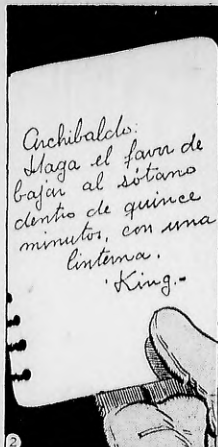 Archibaldo:
Haga el favor de
bajar al sótano
dentro de quince
minutos, con una
linterna.
King.-
2